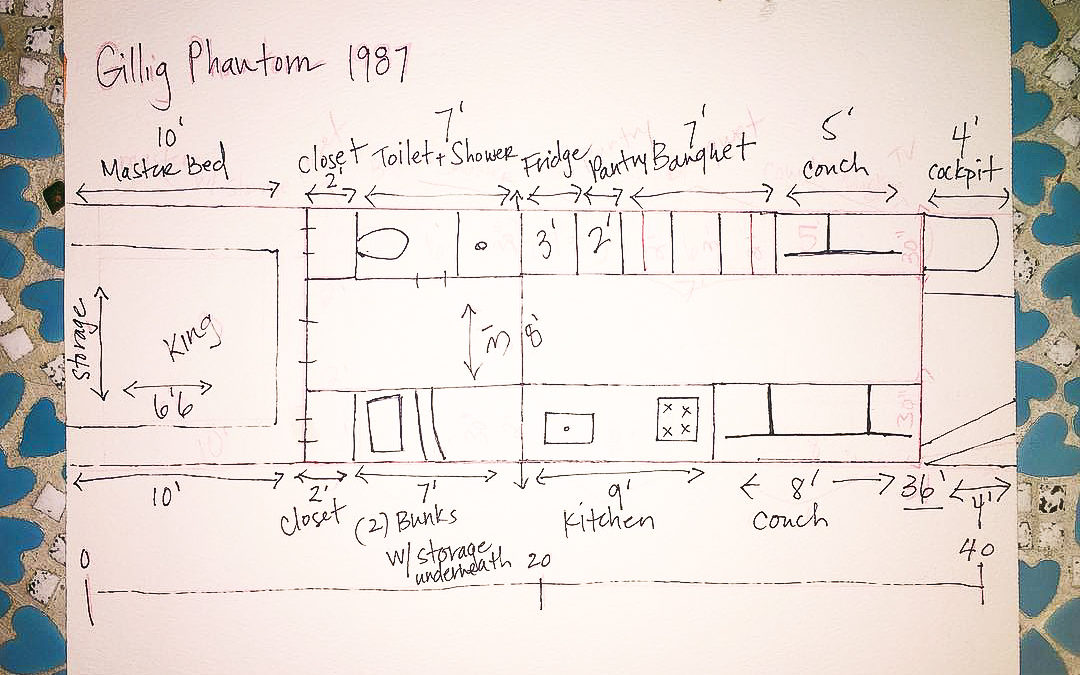 Gillig Phantom 1987
10'
Master Bed
closet
2'
7'
Toilet + Shower
Fridge
Pantry
7'
Banquet
5'
couch
4'
cockpit
3'
2'
30"
Storage
King
6'6
3'
8'
30"
10'
2'
closet
7'
(2) Bunks
w/ storage
underneath
9'
Kitchen
8'
couch
36'
4'
0
20
40